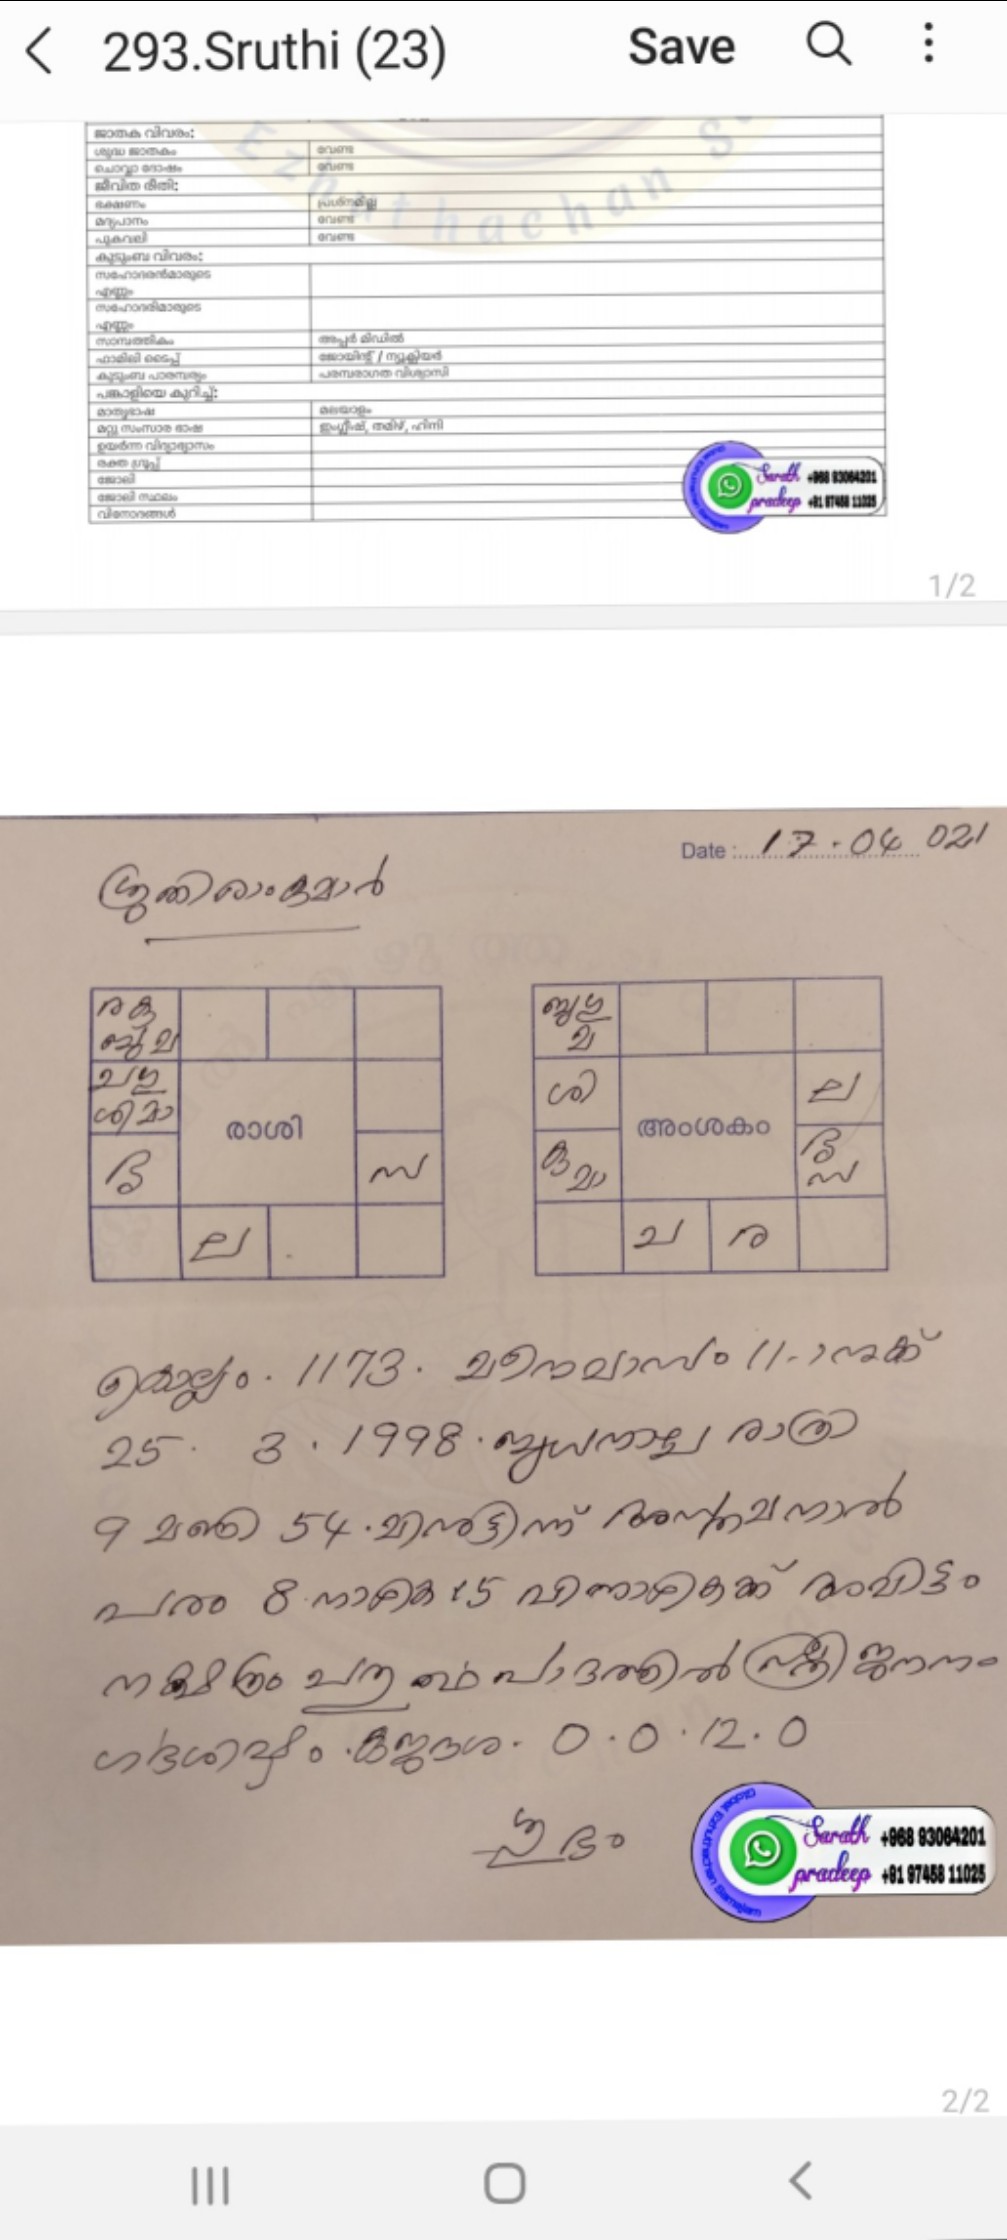 293.Sruthi (23)
Save
ജാതക വിവരം:
ശുദ്ധ ജാതകം വേണ്ട
ചൊവ്വാ ദോഷം വേണ്ട
ജീവിത രീതി:
ഭക്ഷണം പ്രശ്നമില്ല
മദ്യപാനം വേണ്ട
പുകവലി വേണ്ട
കുടുംബ വിവരം:
സഹോദരൻമാരുടെ
എണ്ണം
സഹോദരിമാരുടെ
എണ്ണം
സാമ്പത്തികം അപ്പർ മിഡിൽ
ഫാമിലി ടൈപ്പ് ജോയിന്റ് / ന്യൂക്ലിയർ
കുടുംബ പാരമ്പര്യം പരമ്പരാഗത വിശ്വാസി
പങ്കാളിയെ കുറിച്ച്:
മാതൃഭാഷ മലയാളം
മറ്റു സംസാര ഭാഷ ഇംഗ്ലീഷ്, തമിഴ്, ഹിന്ദി
ഉയർന്ന വിദ്യാഭ്യാസം
രക്ത ഗ്രൂപ്പ്
ജോലി
ജോലി സ്ഥലം
വിനോദങ്ങൾ
Ezhuthachan S
Sarath +968 93064201
pradeep +91 97458 11025
1/2
Date : 17.04 021
ശ്രുതി രാംകുമാർ
ര കു
ബു ല
ച ഗു
ശി മാ
രാശി
സ
ല
ബു ഗു
മ
ശി
അംശകം
ല
സ
കു
മാ
ച
ര
കൊല്ലം. 1173. മീനമാസം 11-ാം നുക്ക്
25. 3. 1998. ബുധനാഴ്ച രാത്രി
9 മണി 54. മിനുട്ടിന് അസ്തമനാൽ
പരം 8 നാഴിക 15 വിനാഴികക്ക് അവിട്ടം
നക്ഷത്രം ചതുർത്ഥ പാദത്തിൽ സ്ത്രീ ജനനം
ഗർഭശിഷ്ടം. കുജദശ. 0.0.12.0
ശുഭം
Global Ezhuthachan Samajam
Sarath +968 93064201
pradeep +91 97458 11025
2/2